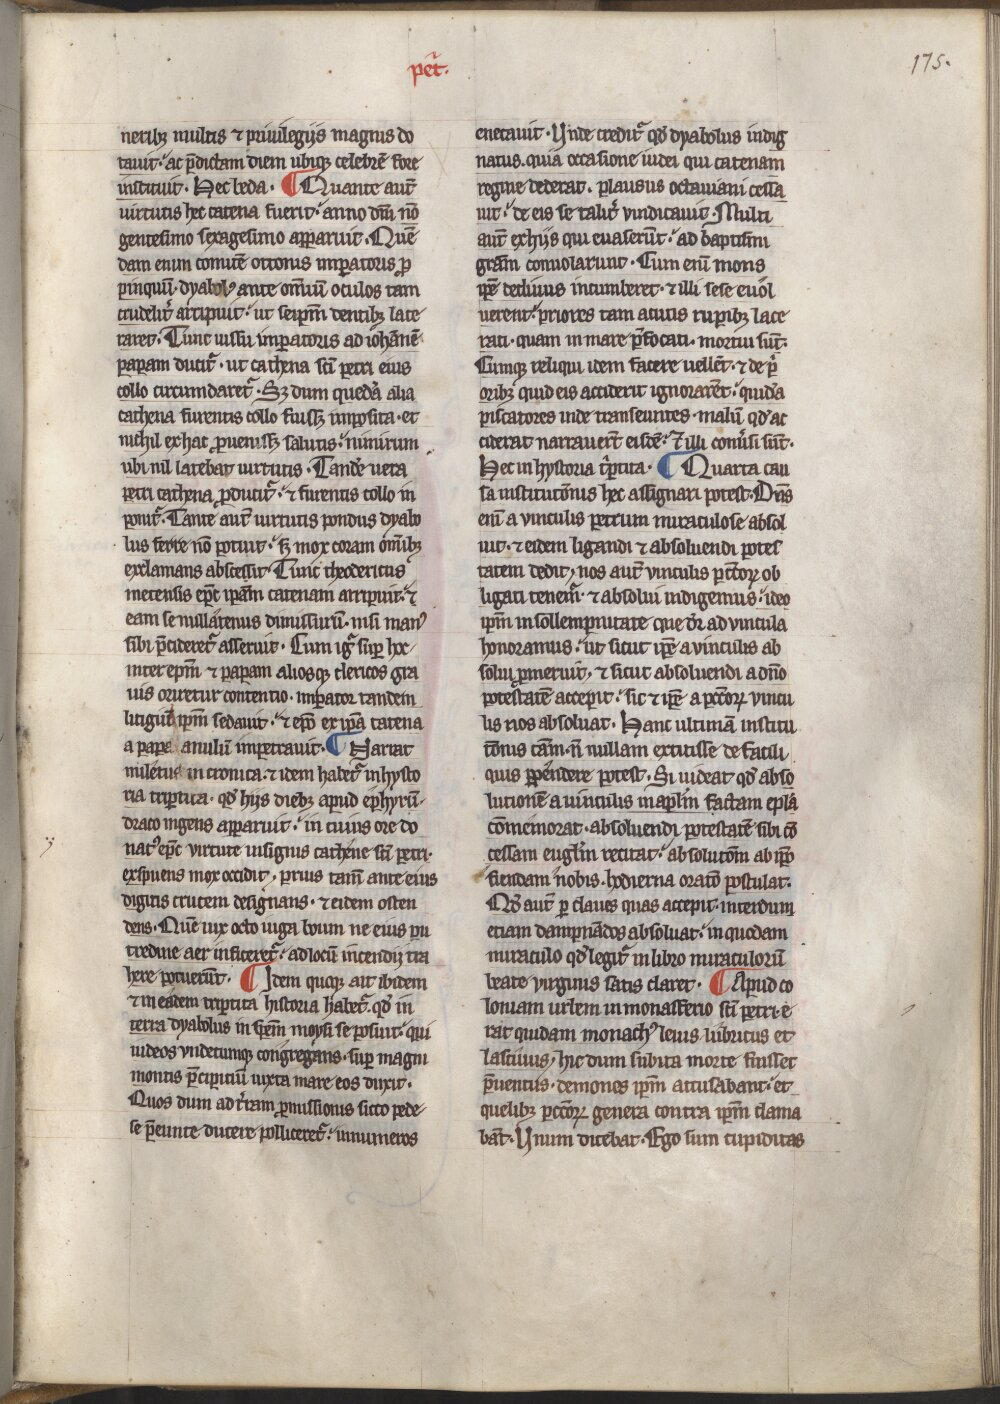 pet̄.
175.
neribꝫ multis ⁊ priuilegijs magnis do
tauit. ac p̄dictam diem ubiqꝫ celebrē fore
instituit. Hec beda. ¶ Quante aut̄
uirtutis hec catena fuerit. anno dn̄i nō
gentesimo sexagesimo apparuit. Quē
dam enim comitē ottonis imꝑatoris ꝓ
pinquū. dyabolꝰ ante om̄iū oculos tam
crudelit̄ arripuit. ut seip̄m dentibꝫ lace
raret. Tunc iussu imꝑatoris ad ioh̄annē
papam ducit̄. ut cathena sc̄i petri eius
collo circumdaret̄. Sꝫ dum quedā alia
cathena furentis collo fuissꝫ imposita. et
nichil ex hac ꝓuenissꝫ salutis. nimirum
ubi nil latebat uirtutis. Tandē uera
petri cathena ꝓducit̄. ⁊ furentis collo in
ponit̄. Tante aut̄ uirtutis pondus dyabo
lus ferre nō potuit. sꝫ mox coram om̄ibꝫ
exclamans abscessit. Tunc theodericus
metensis ep̄c ip̄am catenam arripuit. ⁊
eam se nullatenus dimissurū. nisi manꝰ
sibi p̄cideret̄ asseruit. Cum iḡ suꝑ hoc
inter ep̄m ⁊ papam aliosqꝫ clericos gra
uis oriretur contentio. imꝑator tandem
litigiū ip̄m sedauit. ⁊ ep̄o ex ip̄a catena
a papa anulū impetrauit. ¶ Narrat
miletus in cronica. ⁊ idem habet̄ in hysto
ria triꝑtita. qd̄ hijs diebꝫ apud ephyrū.
draco ingens apparuit. in cuius ore do
natꝰ ep̄c virtute insignis cathene sc̄i petri.
exspuens mox occidit. prius tam̄ ante eius
digitis crucem designans. ⁊ eidem osten
dens. Quē uix octo iuga boum ne eius pu
tredine aer inficeret̄. ad locū incendij tra
here potuerūt. ¶ Idem quoqꝫ ait ibidem
⁊ in eādem triꝑtita historia habet̄. qd̄ in
terra dyabolus in spēm moysi se posuit. qui
iudeos undecumqꝫ congregans. suꝑ magni
montis p̄cipitiū iuxta mare eos duxit.
Quos dum ad t̄ram ꝓmissionis sicco pede
se p̄eunte ducere polliceret̄. innumeros
enecauit. Unde credit̄ qd̄ dyabolus indig
natus. quia occasione iudei qui catenam
regine dederat. plausus octauiani cessa
uit. de eis se talit̄ vindicauit. Multi
aut̄ ex hijs qui euaserūt. ad baptismi
grām conuolarunt. Cum enī mons
ip̄e decliuus incumberet. ⁊ illi sese euol
uerent. priores tam acutis rupibꝫ lace
rati. quam in mare p̄focati. mortui sūt.
Cumqꝫ reliqui idem facere uellēt. ⁊ de p̄
oribꝫ quid eis acciderit ignorarēt. quidā
piscatores inde transeuntes. malū qd̄ ac
ciderat narrauerūt eisdē. ⁊ illi conūsi sūt.
Hec in hystoria t̄ptita. ¶ Quarta cau
sa institucōnis hec assignari potest. Dn̄s
enī a vinculis petrum miraculose absol
uit. ⁊ eidem ligandi ⁊ absoluendi potes
tatem dedit, nos aut̄ vinculis pc̄torꝝ ob
ligati tenem̄. ⁊ absolui indigemus. ideo
ip̄m in sollempnitate que dr̄ ad vincula
honoramus. ut sicut ip̄e a vinculis ab
solui ꝓmeruit, ⁊ sicut absoluendi a dn̄o
potestatē accepit. sic ⁊ ip̄e a pc̄torꝝ vincu
lis nos absoluat. Hanc ultimā institu
cōnis cām. n̄ nullam extitisse de facili
quis ꝑpendere potest. Si uideat qd̄ abso
lutionē a uinculis ap̄lm̄ factam epl̄a
cōmemorat. absoluendi potestatē sibi cō
cessam euglm̄ recitat. absolutōm ab ip̄o
fiendam nobis. hodierna oratō postulat.
Qd̄ aut̄ ꝑ claues quas accepit. interdum
etiam dampnādos absoluat. in quodam
miraculo qd̄ legit̄ in libro miraculorū
beate virginis satis claret. ¶ Apud co
loniam urbem in monasterio sc̄i petri. e
rat quidam monachꝰ leuis lubricus et
lasciuus, hic dum subita morte fuisset
p̄uentus. demones ip̄m accusabant. et
quelibꝫ pc̄torꝝ genera contra ip̄m clama
bāt. Unum dicebat. Ego sum cupiditas